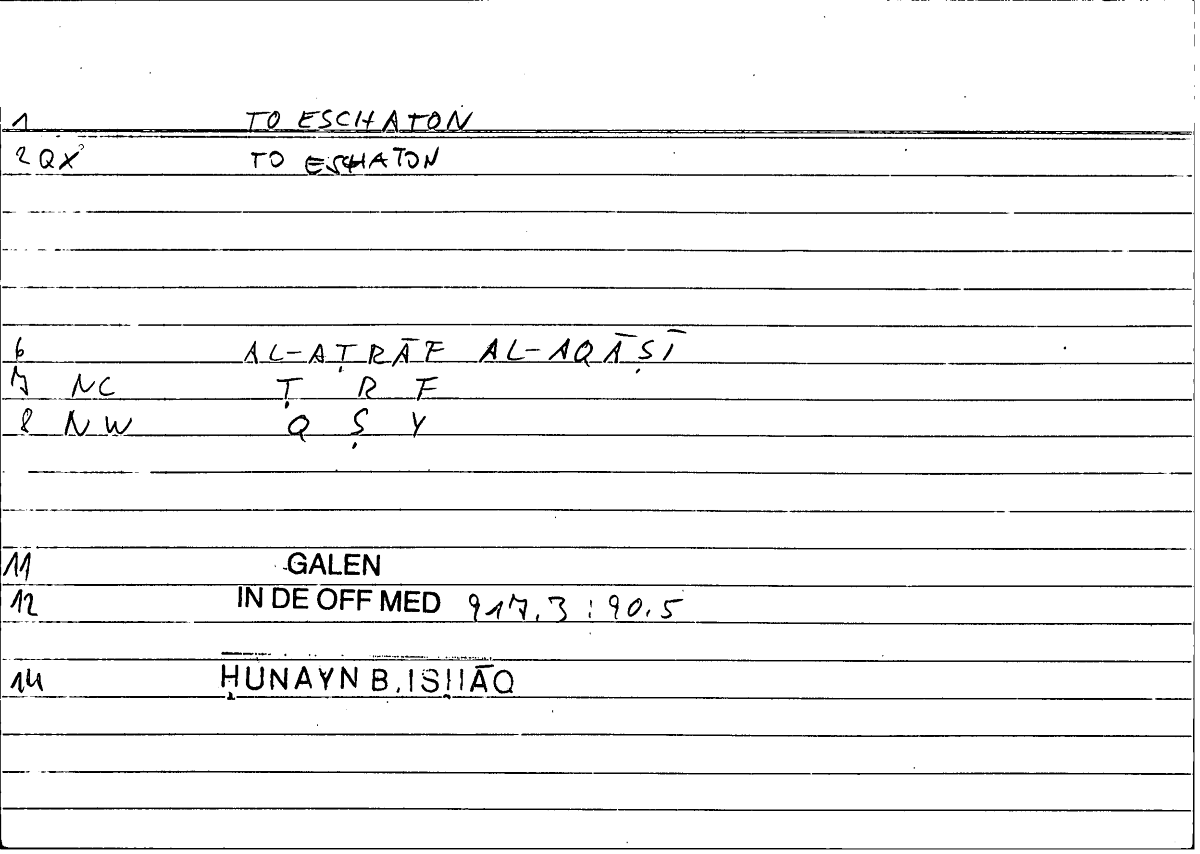 1 TO ESCHATON
2 QX° TO ESCHATON
6 AL-AṬRĀF AL-AQĀṢĪ
7 NC Ṭ R F
8 NW Q Ṣ Y
11 GALEN
12 IN DE OFF MED 917.3 : 90.5
14 ḤUNAYN B. ISḤĀQ